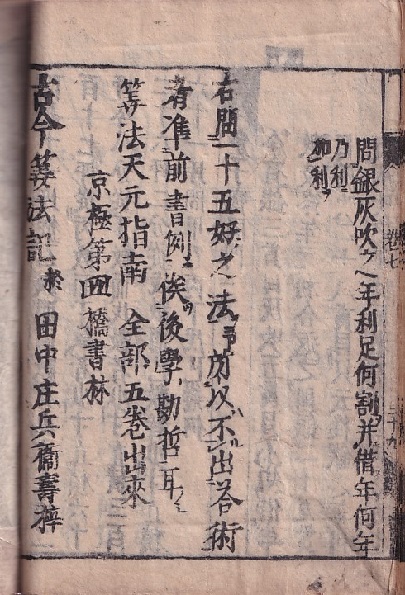 卷七
二十九
問銀灰吹〆年利足何割并借年何年
乃利
加利
右問一十五好之法所以不出答術
者准前書例俟後學勘哲耳
筭法天元指南 全部五巻出来
京極第四橋書林
古今筭法記終 田中庄兵衛壽梓